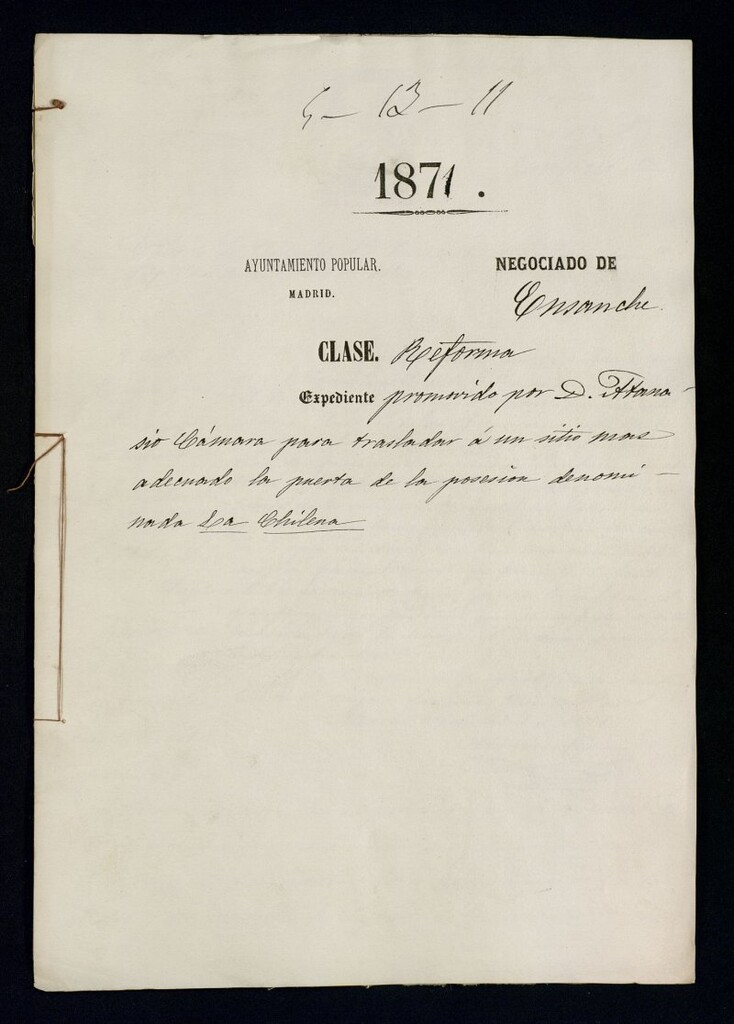 5 – 13 – 11
1871.
AYUNTAMIENTO POPULAR.
MADRID.
NEGOCIADO DE
Ensanche.
CLASE. Reforma
Expediente promovido por D. Atana-
sio Cámara para trasladar á un sitio mas
adecuado la puerta de la posesion denomi-
nada La Chilena